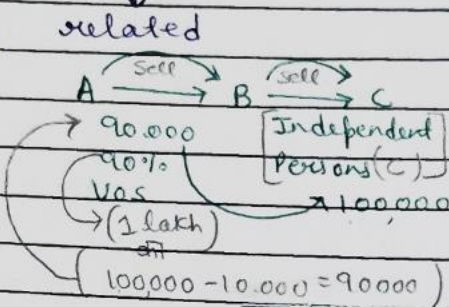 related
sell sell
A B C
90.000 [Independent
90% Persons (C)]
VOS 100,000
(1 lakh)
(100,000 - 10.000 = 90000)